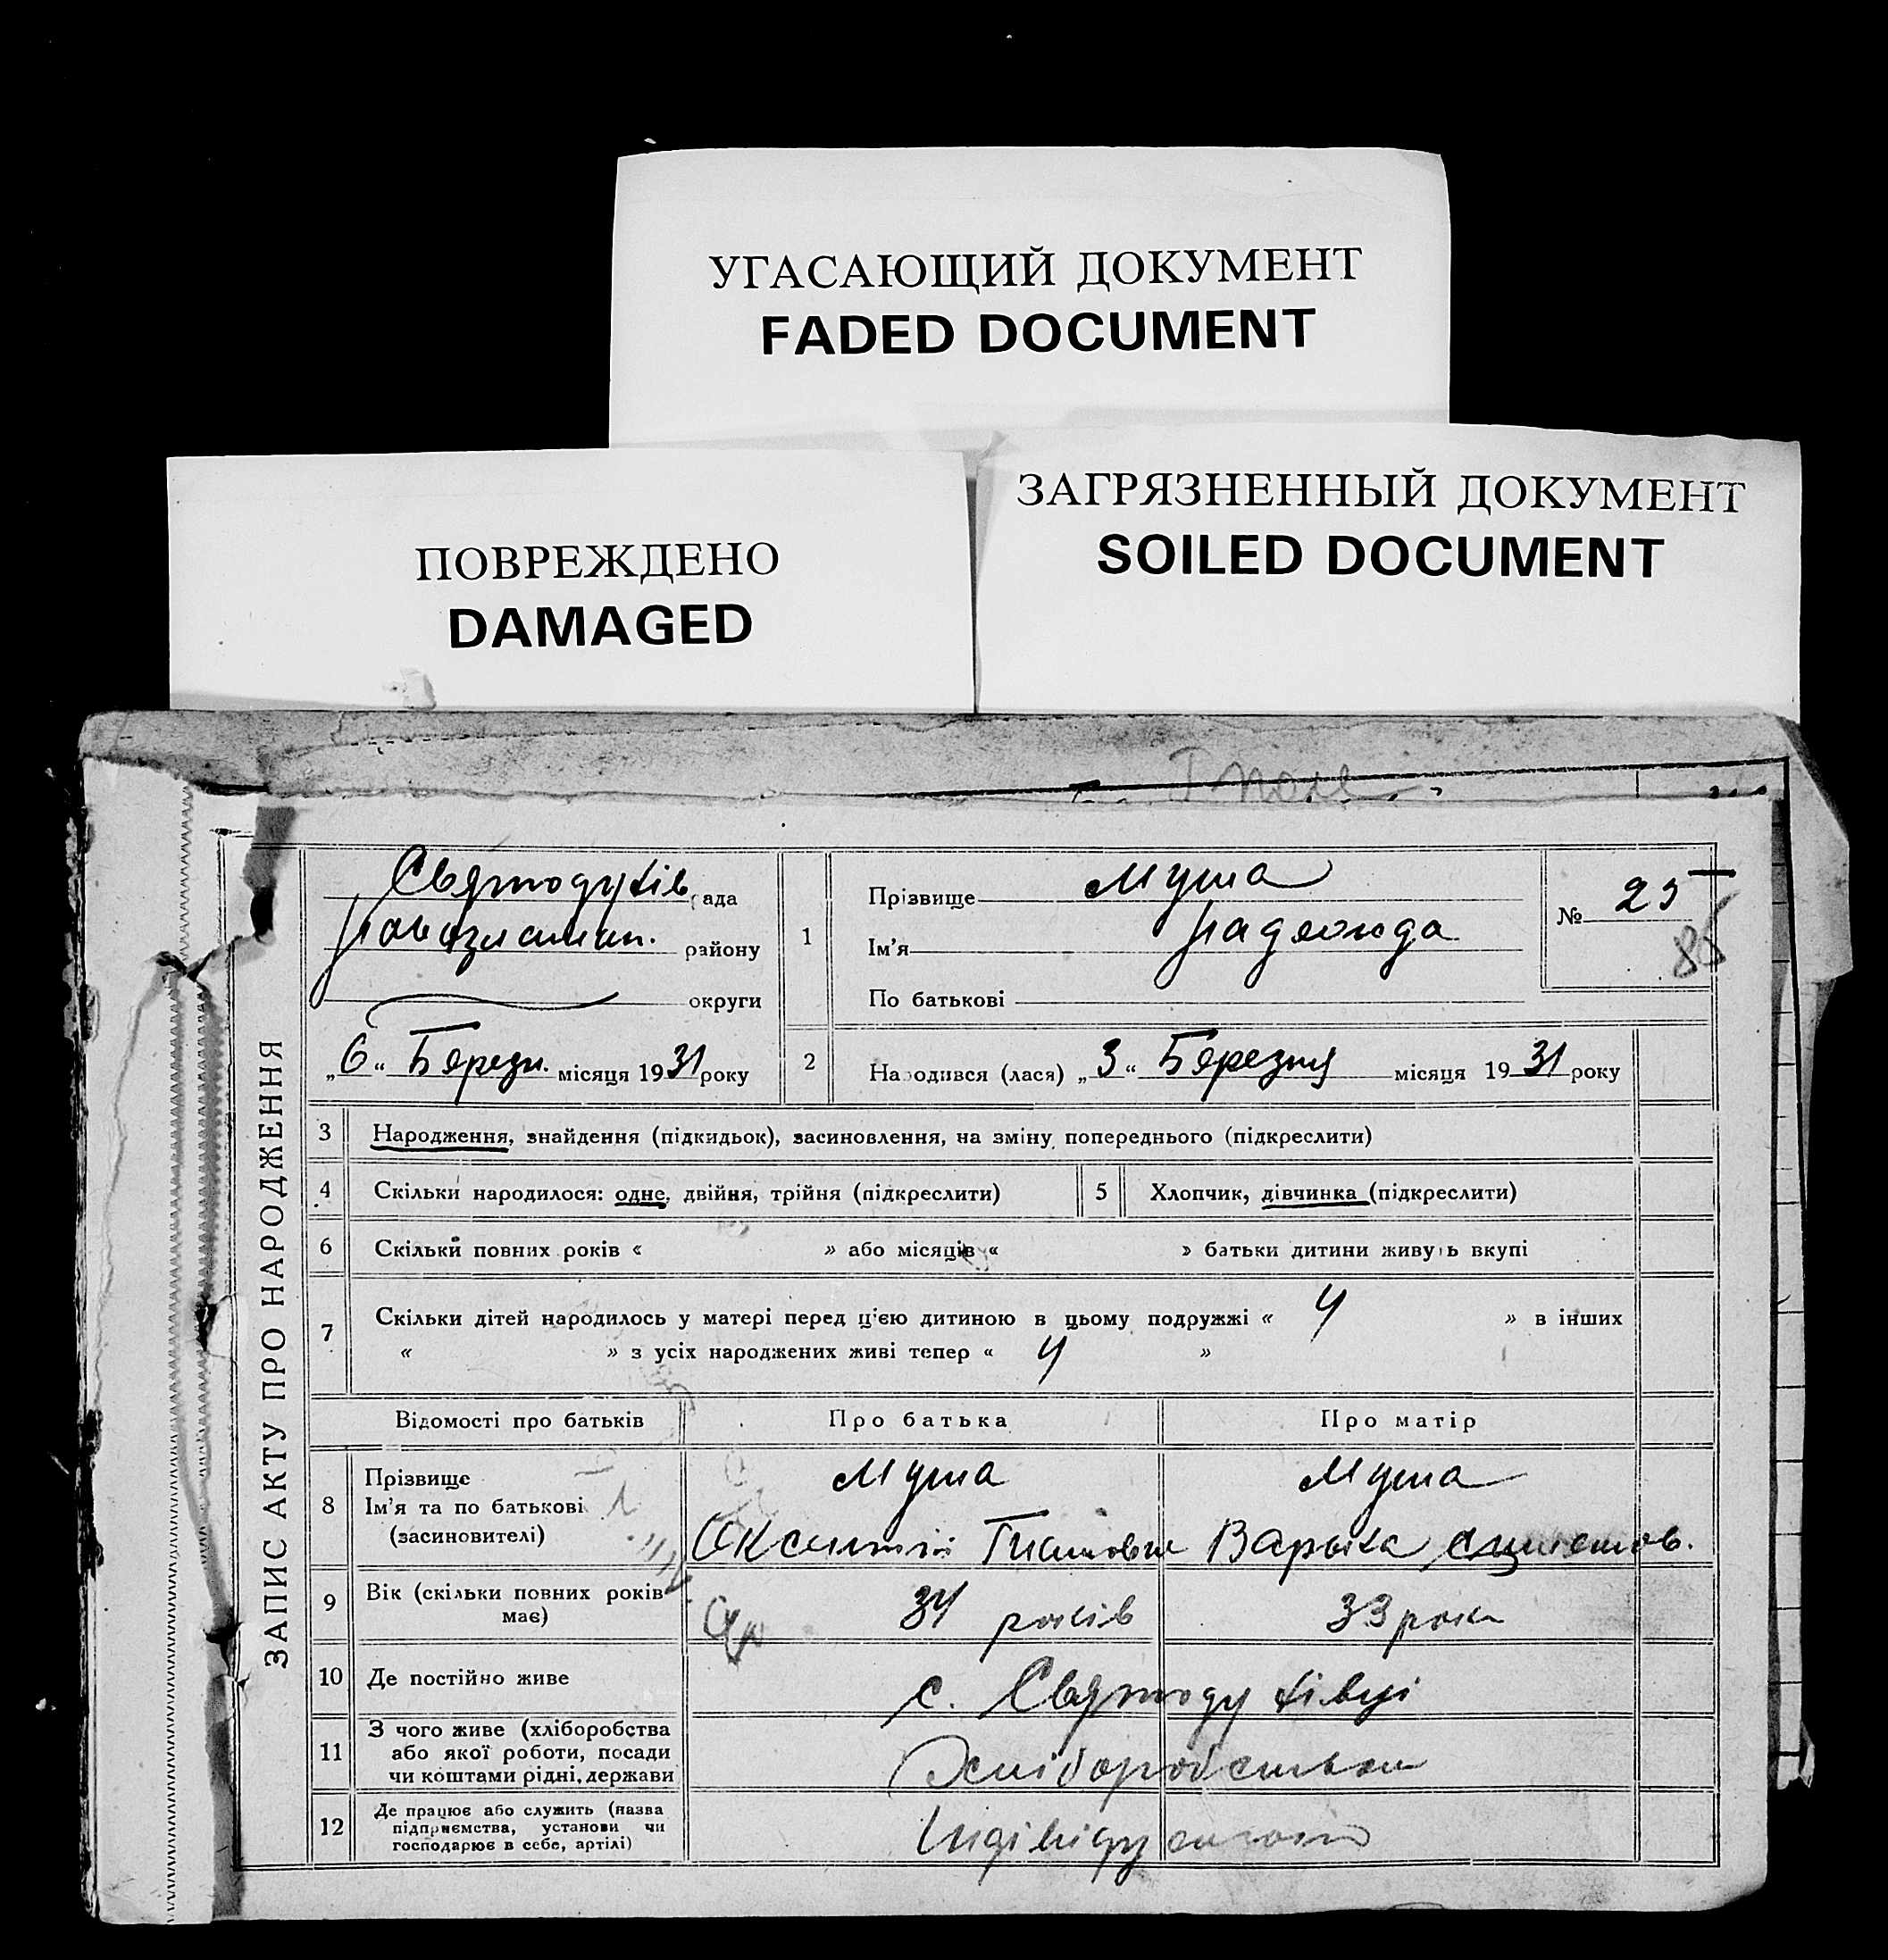 УГАСАЮЩИЙ ДОКУМЕНТ
FADED DOCUMENT
ПОВРЕЖДЕНО
DAMAGED
ЗАГРЯЗНЕННЫЙ ДОКУМЕНТ
SOILED DOCUMENT
ЗАПИС АКТУ ПРО НАРОДЖЕННЯ
Святодухів рада
району
округи
„6“ Березн. місяця 1931 року
1
Прізвище Муша
Ім’я Надежда
По батькові
№ 25
85
2 Народився (лася) „3“ Березня місяця 1931 року
3 Народження, знайдення (підкидьок), засиновлення, на зміну попереднього (підкреслити)
4 Скільки народилося: одне, двійня, трійня (підкреслити) 5 Хлопчик, дівчинка (підкреслити)
6 Скільки повних років « » або місяців « » батьки дитини живуть вкупі
7 Скільки дітей народилось у матері перед ц'єю дитиною в цьому подружжі « 4 » в інших
« » з усіх народжених живі тепер « 4 »
Відомості про батьків Про батька Про матір
8 Прізвище Муша Муша
Ім’я та по батькові
(засиновителі) Варька
9 Вік (скільки повних років має) 34 років 33 роки
10 Де постійно живе с. Святодухівці
11 З чого живе (хліборобства
або якої роботи, посади
чи коштами рідні, держави
Хліборобством
12 Де працює або служить (назва
підприємства, установи чи
господарює в себе, артілі)